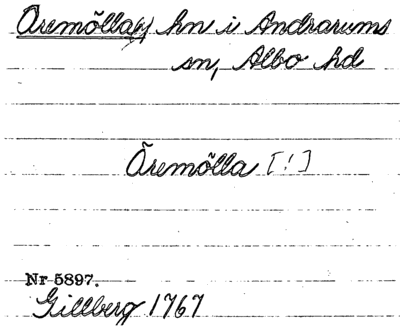 Öremölla, hn i Andrarums
sn, Albo hd
Õremõlla [!]
Nr 5897.
Gillberg 1767